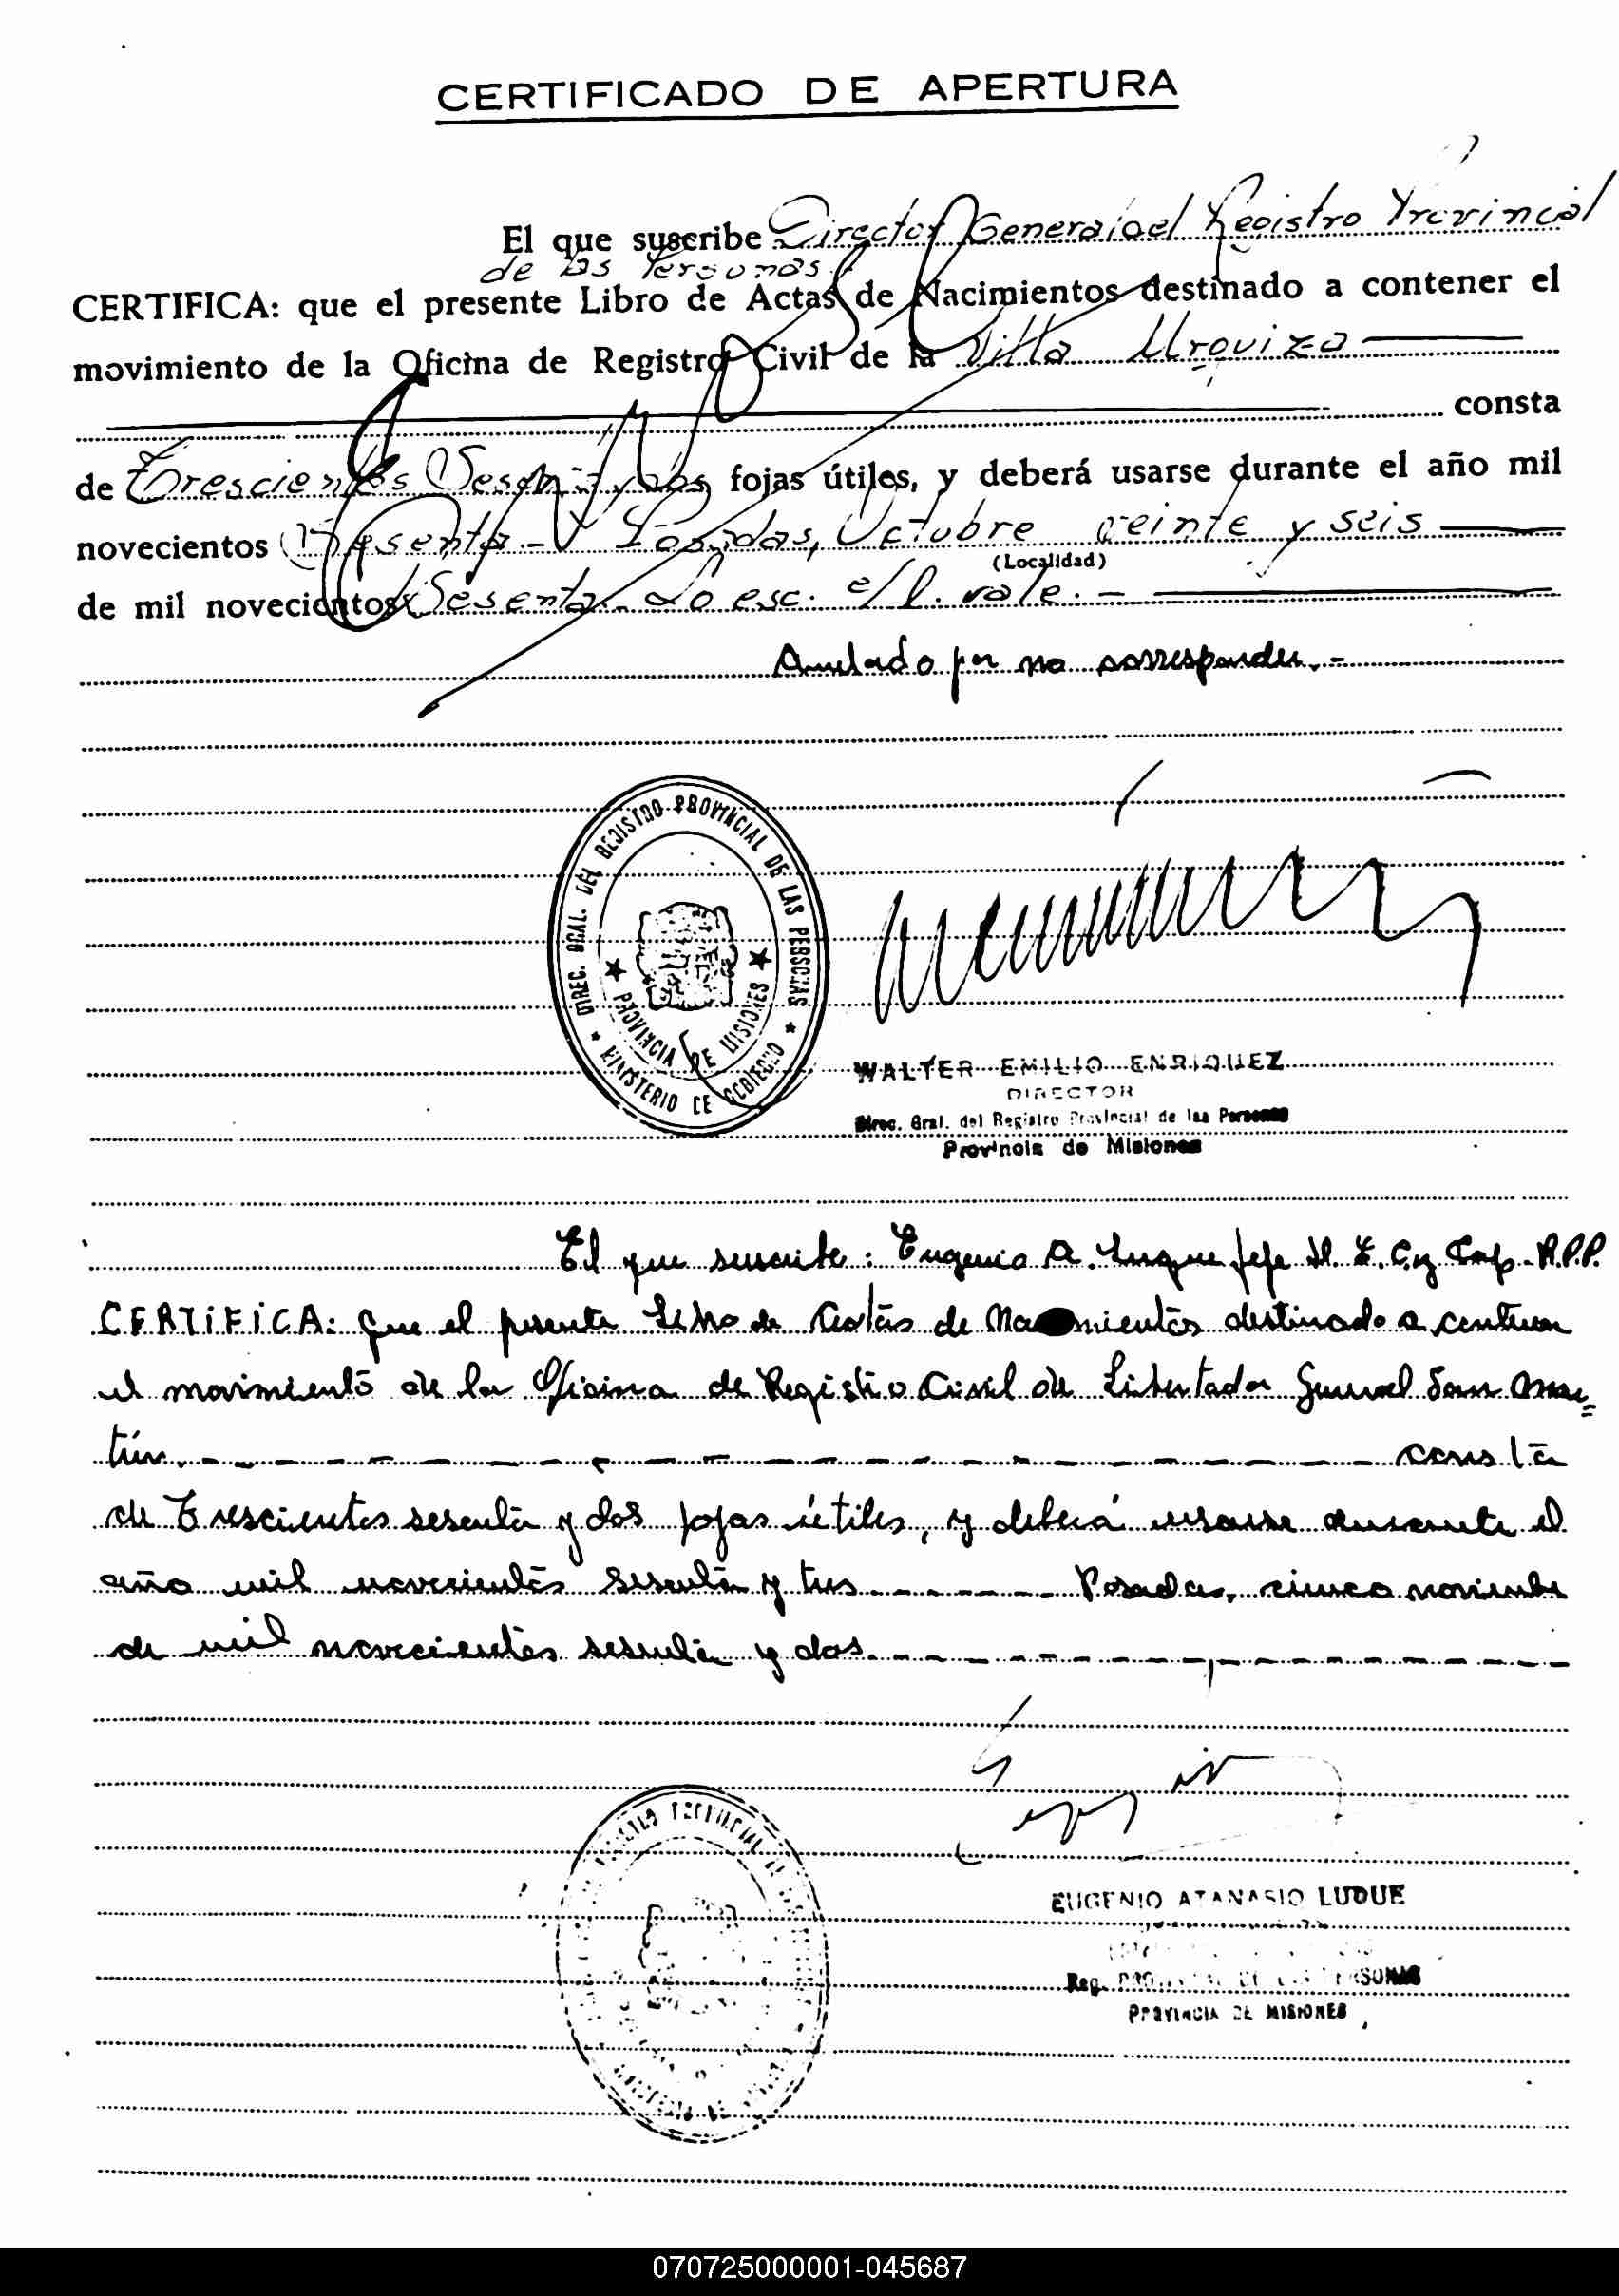 CERTIFICADO DE APERTURA
El que suscribe Director General del Registro Provincial
de las Personas.
CERTIFICA: que el presente Libro de Actas de Nacimientos destinado a contener el
movimiento de la Oficina de Registro Civil de la Villa Urquiza
consta
de Trescientos Sesenta y dos fojas útiles, y deberá usarse durante el año mil
novecientos Sesenta - Posadas, Octubre veinte y seis
(Localidad)
de mil novecientos Sesenta. Lo esc. e/l. vale. -
Anulado por no corresponder. -
DIREC. GRAL. DEL REGISTRO PROVINCIAL DE LAS PERSONAS
PROVINCIA DE MISIONES
MINISTERIO DE GOBIERNO
WALTER EMILIO ENRIQUEZ
DIRECTOR
Direc. Gral. del Registro Provincial de las Personas
Provincia de Misiones
El que suscribe: Eugenio A. Luque Jefe R.P.P.
CERTIFICA: que el presente Libro de Actas de Nacimientos destinado a contener
el movimiento de la Oficina de Registro Civil de Libertador General San Mar=
tín. consta
de Trescientos sesenta y dos fojas útiles, y deberá usarse durante el
año mil novecientos sesenta y tres Posadas, cinco noviembre
de mil novecientos sesenta y dos.
EUGENIO ATANASIO LUQUE
Reg. PROVINCIAL DE LAS PERSONAS
PROVINCIA DE MISIONES
070725000001-045687